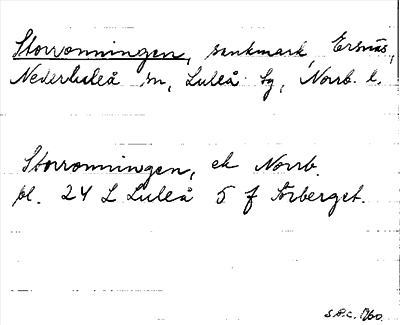 Storronningen, sankmark, Ersnäs,
Nederluleå sn, Luleå tg, Norrb. l.
Storronningen, ek Norrb.
bl. 24 L Luleå 5 f Furberget.
S.P.C. 1960.